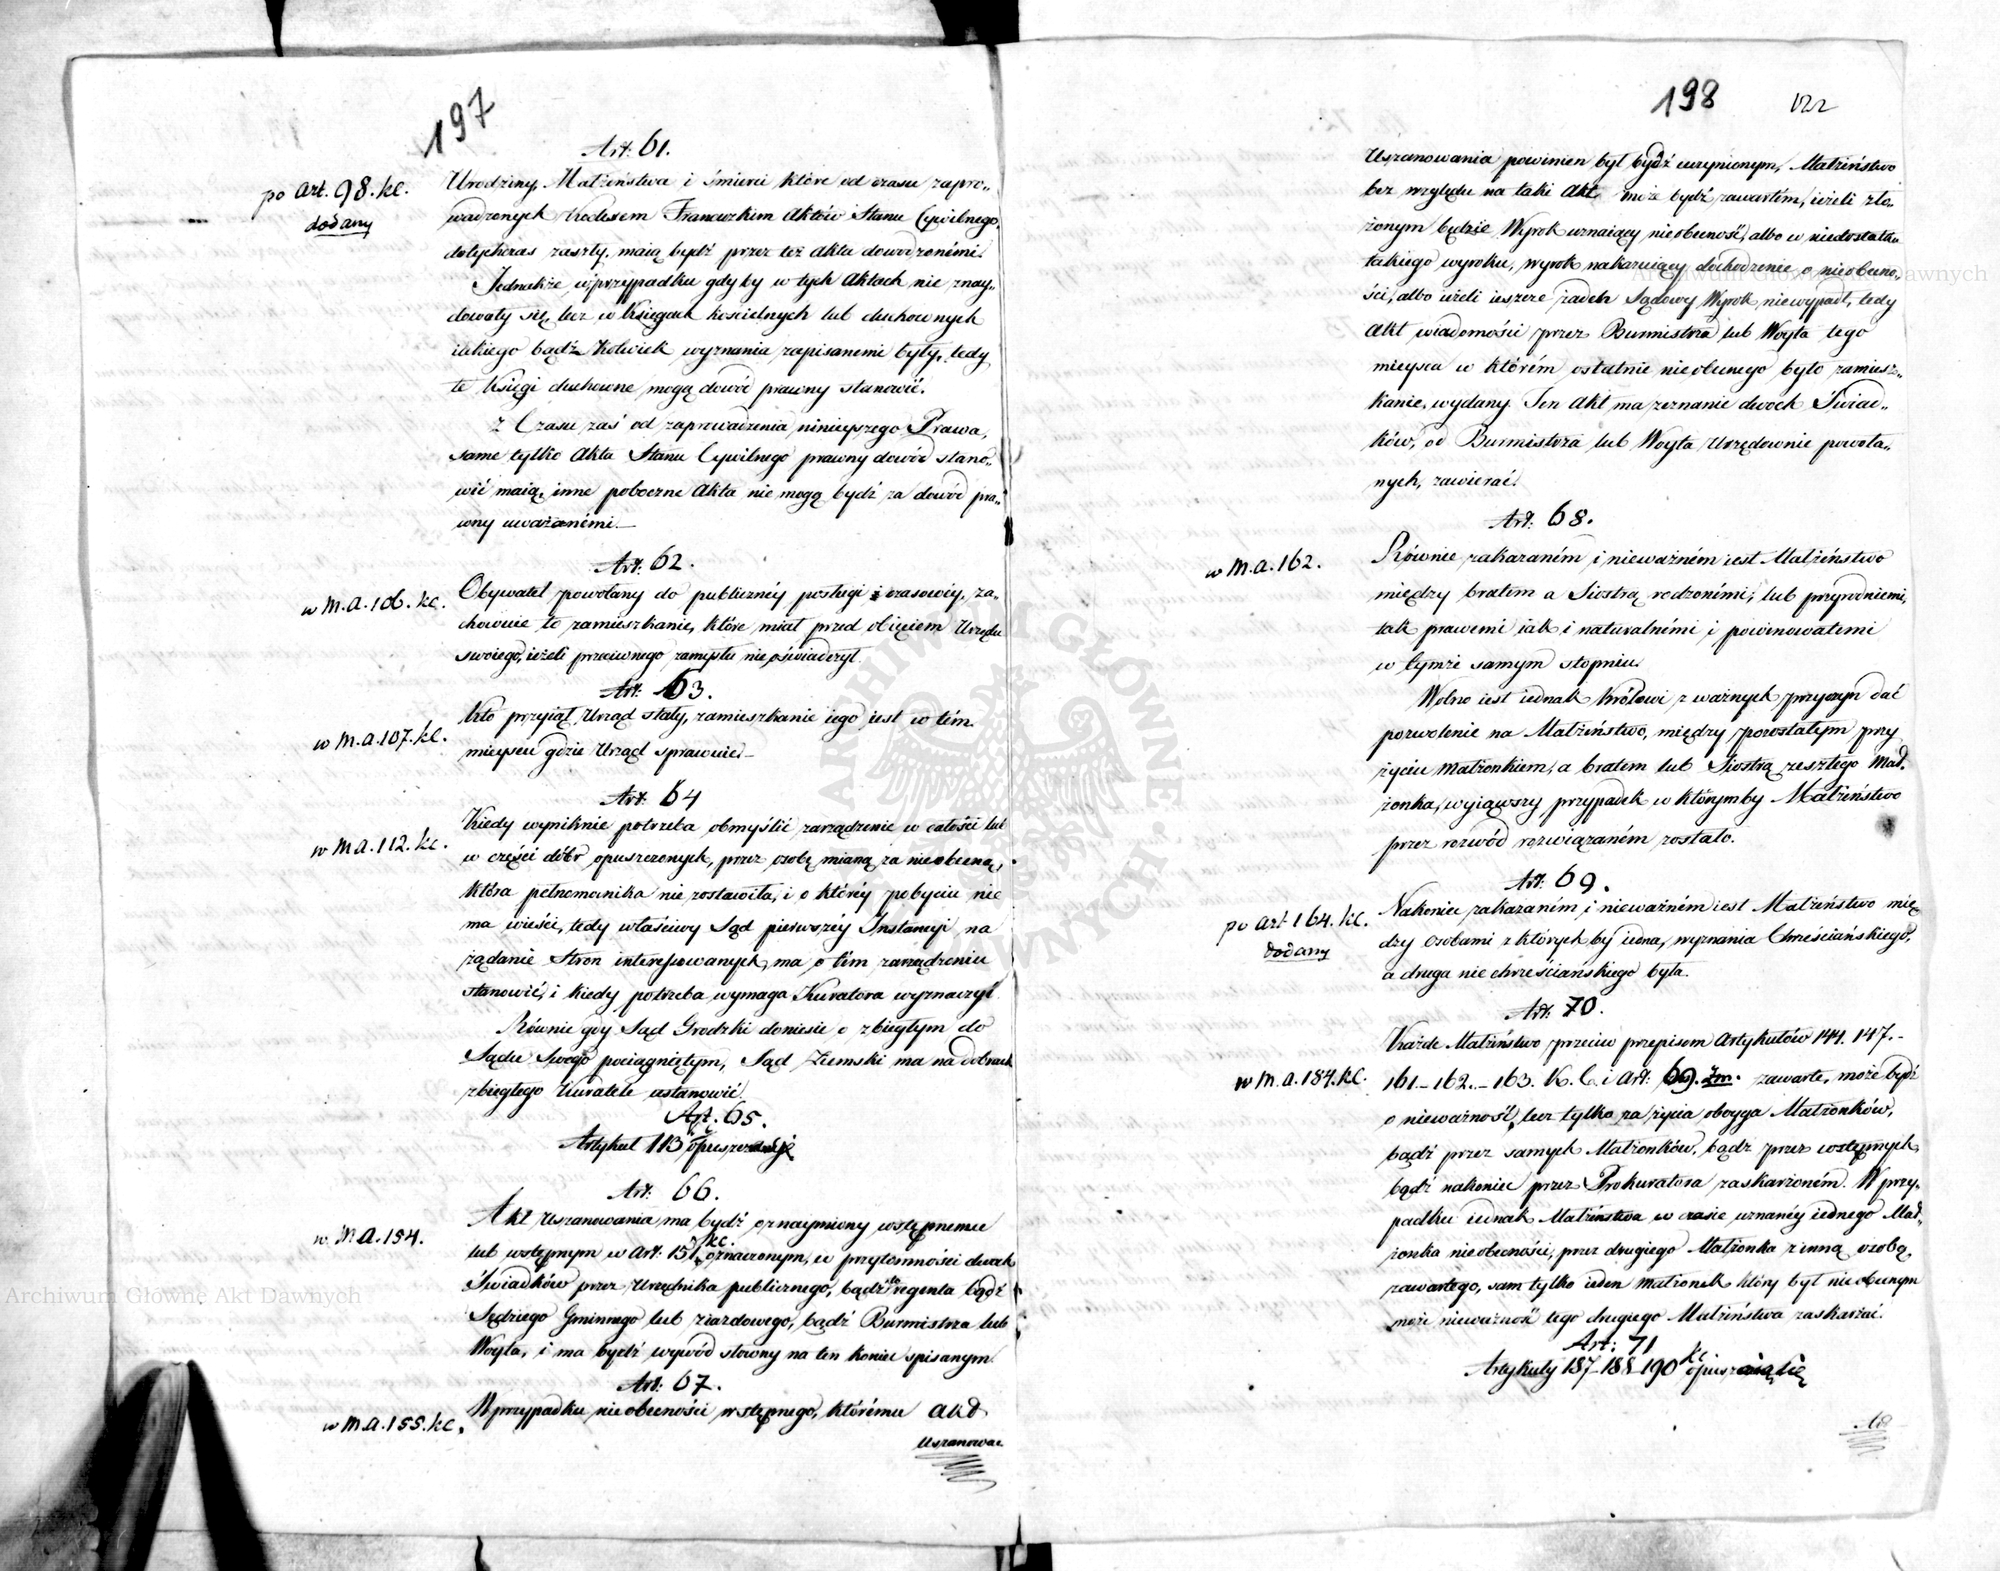 197
Art: 61.
po Art. 98. kc.
dodany
Urodziny, Małżeństwa i śmierci które od czasu zapro-
wadzonych Kodexem Francuzkim Aktów Stanu Cywilnego,
dotychczas zaszły, maią bydź przez też Akta dowodzonémi.
Jednakże w przypadku gdyby w tych Aktach nie znay-
dowały się, lecz w Księgach kościelnych lub duchownych
iakiego bądź kolwiek wyznania zapisanemi były, tedy
te Księgi duchowne mogą dowód prawny stanowić.
Z Czasu zaś od zaprowadzenia ninieyszego Prawa,
same tylko Akta Stanu Cywilnego prawny dowód stano-
wić maią, inne poboczne Akta nie mogą bydź za dowód pra-
wny uważanémi.
Art: 62.
w M. a. 106. kc.
Obywatel powołany do publicznéy posługi i czasowéy, za-
chowuie to zamieszkanie, które miał przed obięciem Urzędu
swoiego, ieżeli przeciwnego zamysłu nie oświadczył.
Art: 63.
w M. a. 107. kc.
Kto przyiął Urząd stały, zamieszkanie iego iest w tém
mieyscu gdzie Urząd sprawuie.
Art: 64
w M a. 112. kc.
Kiedy wyniknie potrzeba obmyślić zarządzenie w całości lub
w części dóbr opuszczonych, przez osobę mianą za nieobecną,
która pełnomocnika nie zostawiła, i o któréy pobyciu nie
ma wieści, tedy właściwy Sąd pierwszéy Instancyi na
żądanie Stron interessowanych, ma o tém zarządzeniu
stanowić, i kiedy potrzeba wymaga Kuratora wyznaczyć.
Równie gdy Sąd Grodzki doniesie o zbiegłym do
Sądu Swego pociągniętym, Sąd Ziemski ma na dobrach
zbiegłego Kuratelę ustanowić.
Art. 65.
Artykuł 113
Art: 66.
w M a. 154.
Akt Uszanowania ma bydź oznaymiony wstępnemu
lub wstępnym w Art. 151 kc. oznaczonym, w przytomności dwóch
Świadków przez Urzędnika publicznego, bądź to regenta bądź
Sędziego Gminnego lub ziazdowego, bądź Burmistrza lub
Woyta, i ma bydź wywód słowny na ten koniec spisanym.
Art: 67.
w M a. 155. kc.
W przypadku nieobecności wstępnego, któremu akt
Uszanowa-
198
122
Uszanowania powinien był bydź uczynionym, Małżeństwo
bez względu na taki Akt może bydź zawartém, ieżeli zło-
żonym będzie Wyrok uznaiący nieobecność, albo w niedostatku
takiego wyroku, wyrok nakazuiący dochodzenie o nieobecno-
ści, albo ieżeli ieszcze żaden Sądowy Wyrok niewypadł, tedy
Akt wiadomości przez Burmistrza lub Woyta tego
mieysca w którém ostatnie nieobecnego było zamiesz-
kanie, wydany. Ten Akt ma zeznanie dwóch Świad-
ków, od Burmistrza lub Woyta Urzędownie powoła-
nych, zawierać.
Art: 68.
w M. a. 162.
Równie zakazaném i nieważném iest Małżeństwo
między bratem a Siostrą rodzonémi, lub przyrodniemi,
tak prawemi iak i naturalnémi i powinowatemi
w tymże samym stopniu.
Wolno iest iednak Królowi z ważnych przyczyn dać
pozwolenie na Małżeństwo, między pozostałym przy
życiu małżonkiem, a bratem lub Siostrą zeszłego Mał-
żonka, wyiąwszy przypadek w którymby Małżeństwo
przez rozwód rozwiązaném zostało.
Art: 69.
po Art 164. kc.
dodany
Nakoniec zakazaném i nieważném iest Małżeństwo mię
dzy osobami z których by iedna, wyznania Chrześciańskiego,
a druga nie chrześciańskiego była.
Art: 70.
w M. a. 184. kc.
Każde Małżeństwo przeciw przepisom Artykułów 144. 147. -
161 - 162. - 163. K. C. i Art: 69. zawarte, może bydź
o nieważność, lecz tylko za życia oboyga Małżonków,
bądź przez samych Małżonków, bądź przez wstępnych,
bądź nakoniec przez Prokuratora zaskarżoném. W przy-
padku iednak Małżeństwa w czasie uznanéy iednego Mał-
żonka nieobecności, przez drugiego Małżonka z inną osobą,
zawartego, sam tylko ieden małżonek który był nieobecnym
może nieważność tego drugiego Małżeństwa zaskarżać.
Art: 71
Artykuły 187 - 188 - 190 kc
Archiwum Główne Akt Dawnych